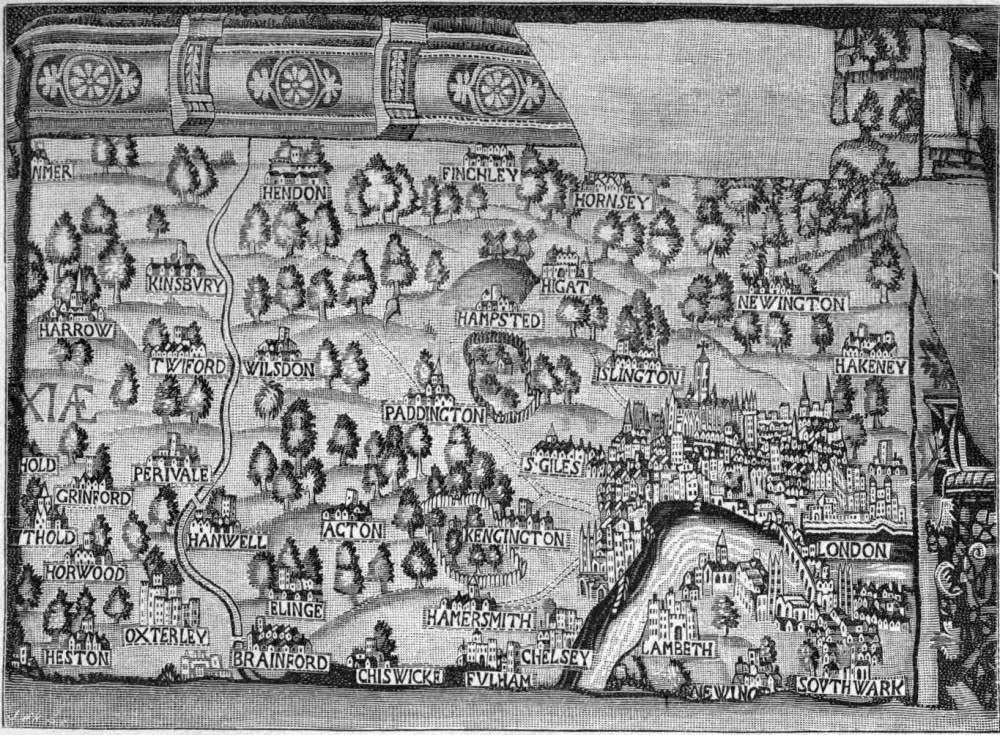 NMER
HENDON
FINCHLEY
HORNSEY
KINSBVRY
HIGAT
NEWINGTON
HARROW
HAMPSTED
TWIFORD
WILSDON
ISLINGTON
HAKENEY
XIÆ
PADDINGTON
HOLD
PERIVALE
S·GILES
GRINFORD
THOLD
HANWELL
ACTON
KENCINGTON
LONDON
HORWOOD
ELINGE
HAMERSMITH
OXTERLEY
LAMBETH
HESTON
BRAINFORD
CHISWICKE
FVLHAM
CHELSEY
SOVTHWARK